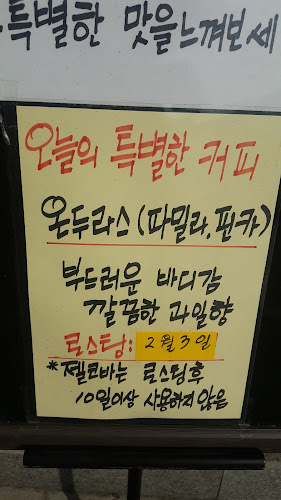 특별한 맛을느껴보세
오늘의 특별한 커피
온두라스(파밀라, 핀카)
부드러운 바디감
깔끔한 과일향
로스팅: 2월 3일
*젤코바는 로스팅후
10일이상 사용하지않은